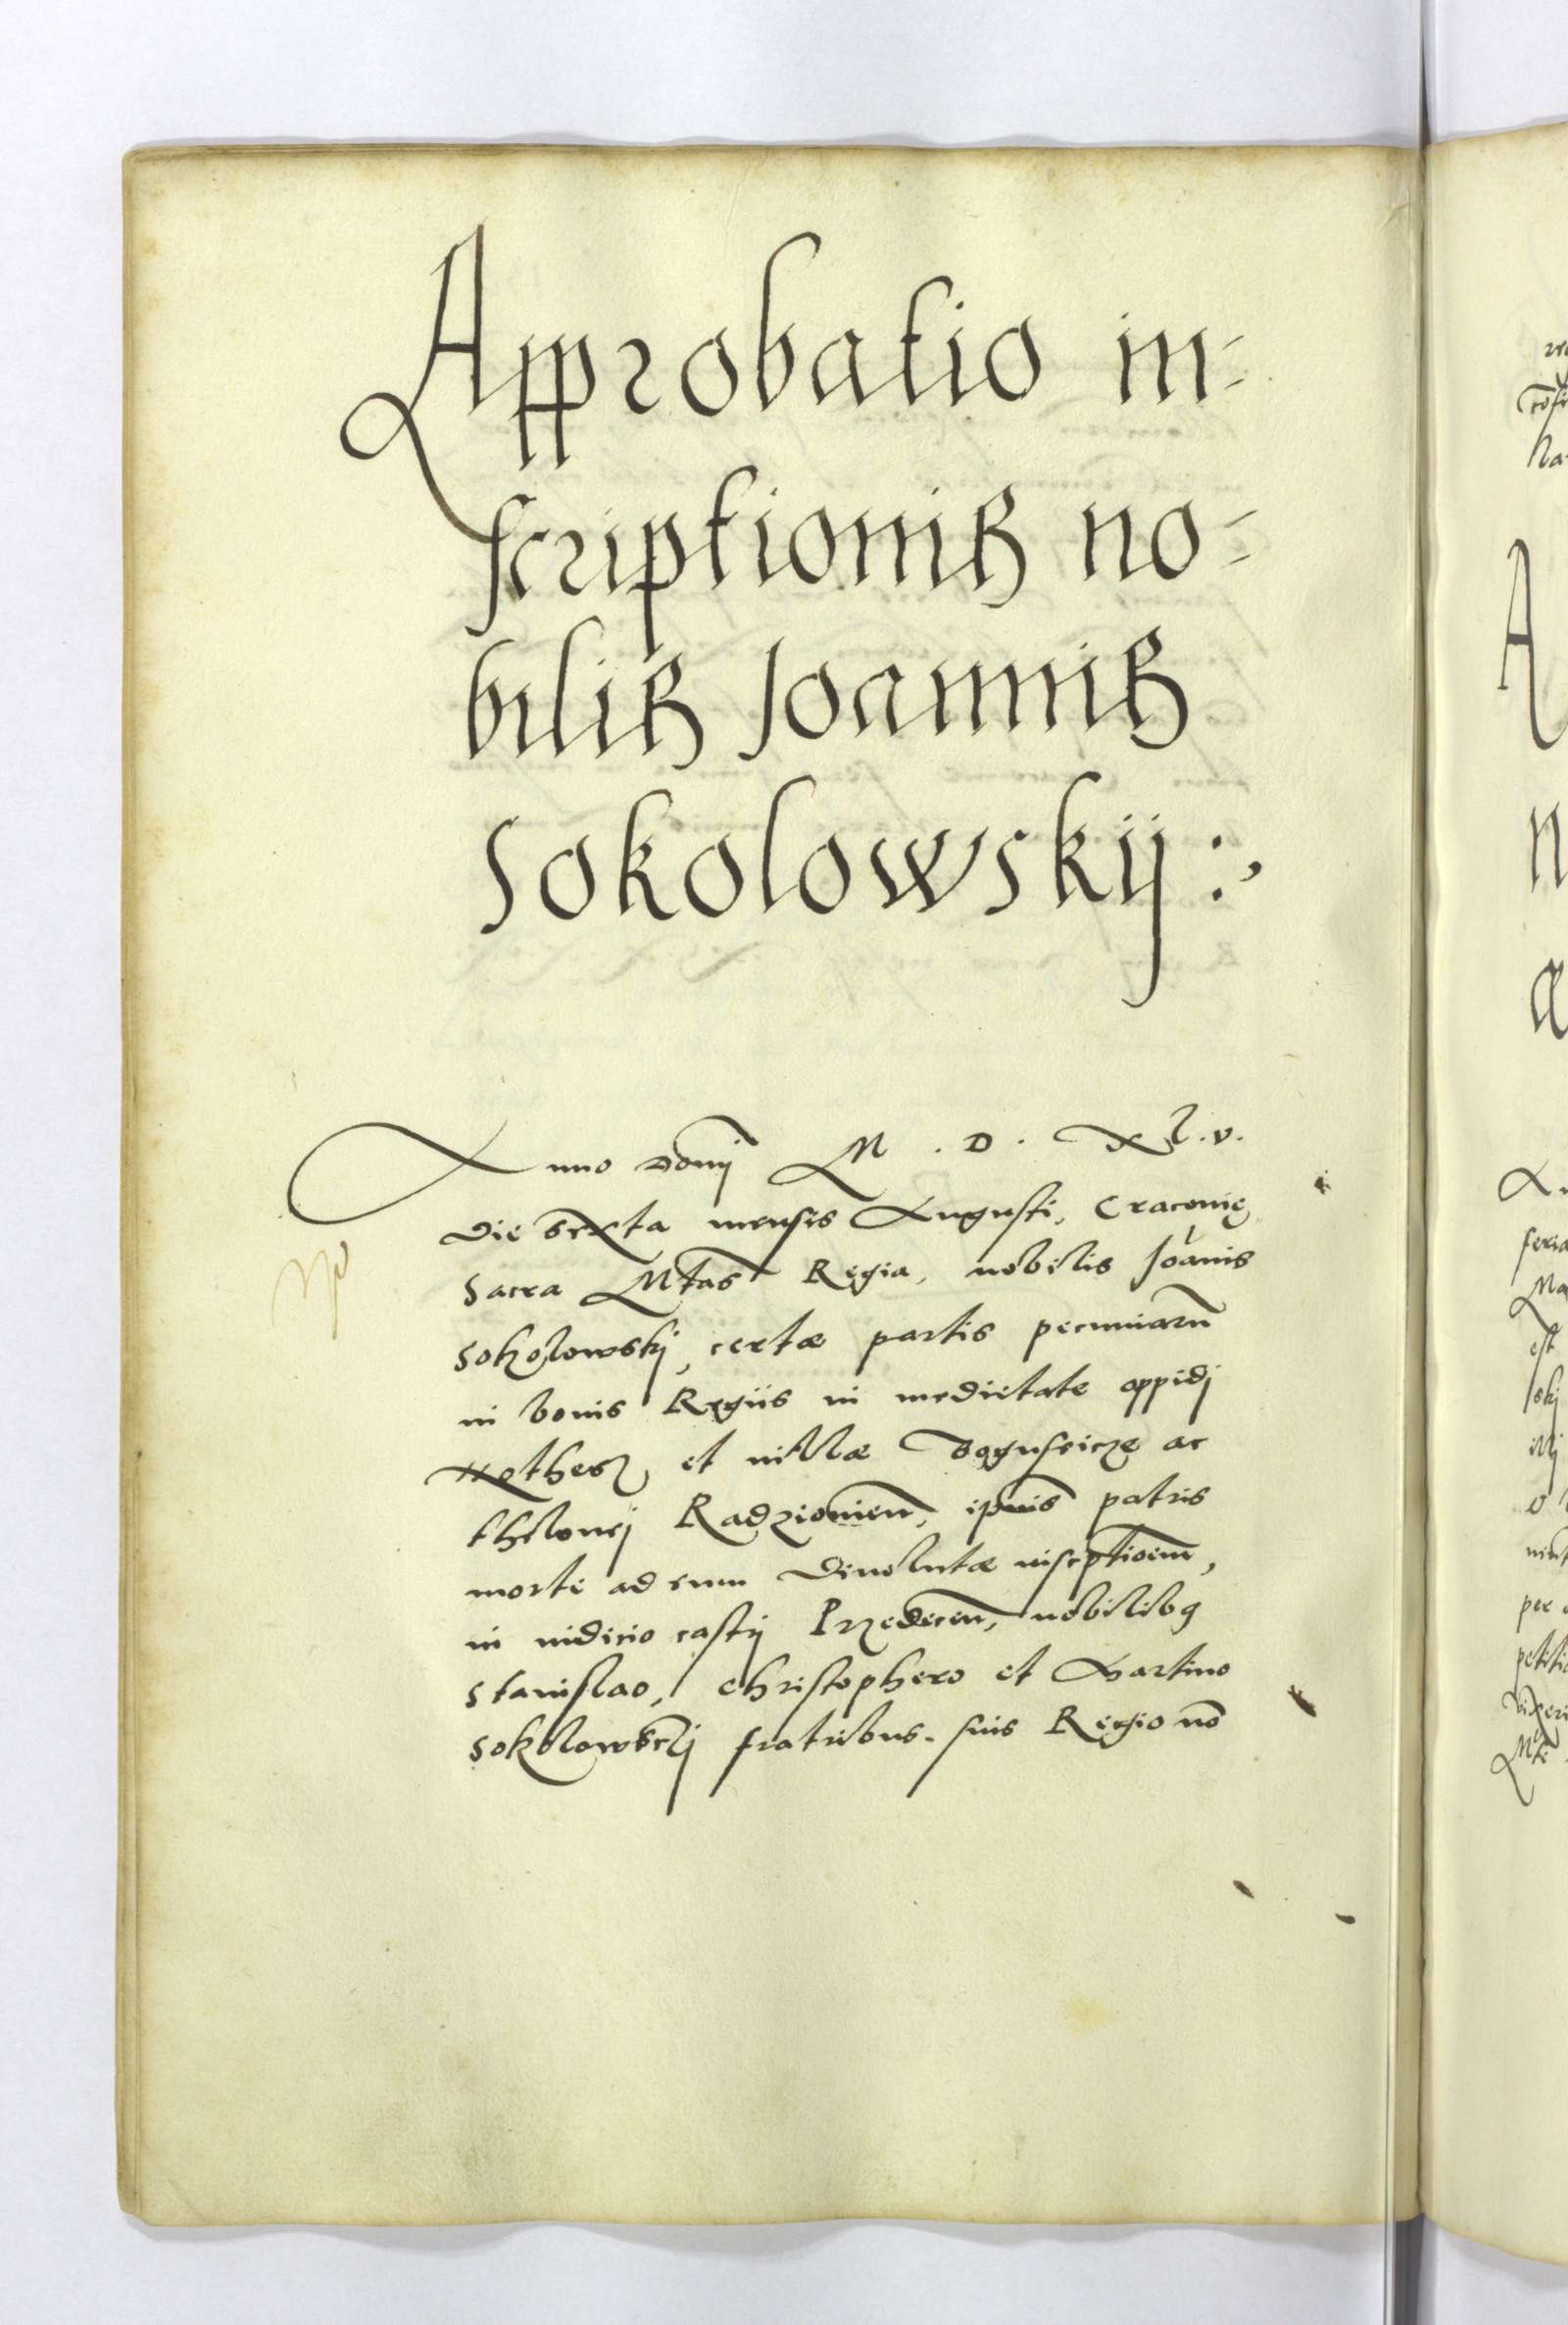 Approbatio in-
scriptionis no-
bilis Joannis
Sokolowskij :,
Anno Domj M . D . Xl . v .
Die Sexta mensis Augusti, Cracouie
Sacra Mtas Regia, nobilis Joānis
Sokolowskj, certæ partis pecuniarū
in bonis Regiis in medietate oppidj
et villæ ac
thelonej patris
morte ad eum deuolutæ inscptioem,
in iudicio castrj nobilibq
Stanislao, Christophero et Martino
fratribus suis Regio nō